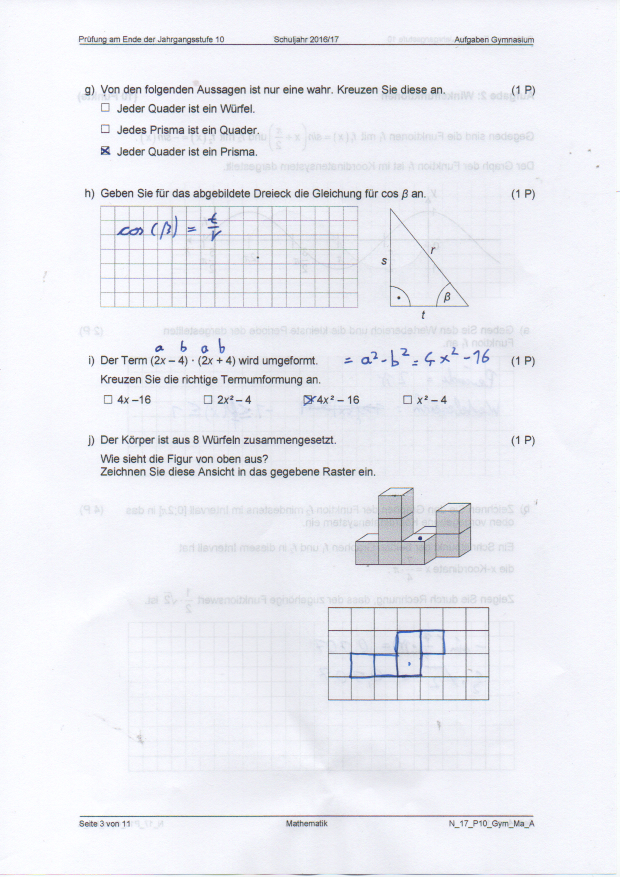 Prüfung am Ende der Jahrgangsstufe 10 Schuljahr 2016/17 Aufgaben Gymnasium
g) Von den folgenden Aussagen ist nur eine wahr. Kreuzen Sie diese an. (1 P)
☐ Jeder Quader ist ein Würfel.
☐ Jedes Prisma ist ein Quader.
☒ Jeder Quader ist ein Prisma.
h) Geben Sie für das abgebildete Dreieck die Gleichung für cos β an. (1 P)
cos (β) = t/r
r
s
β
t
a b a b
i) Der Term (2x – 4) · (2x + 4) wird umgeformt. = a² - b² = 4x² - 16 (1 P)
Kreuzen Sie die richtige Termumformung an.
☐ 4x –16 ☐ 2x² – 4 ☒ 4x² – 16 ☐ x² – 4
j) Der Körper ist aus 8 Würfeln zusammengesetzt. (1 P)
Wie sieht die Figur von oben aus?
Zeichnen Sie diese Ansicht in das gegebene Raster ein.
Seite 3 von 11 Mathematik N_17_P10_Gym_Ma_A